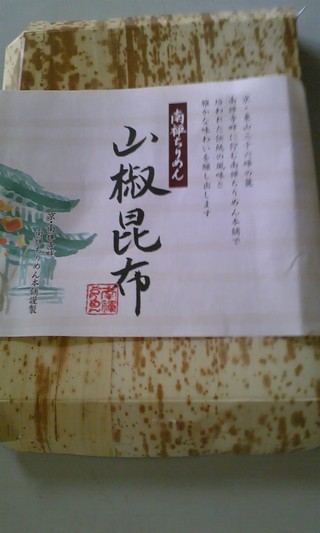 京・東山三十六峰の麓
南禅寺畔に佇む南禅ちりめんで
培われた伝統の風味と
雅かな味わいを醸し出します
南禅ちりめん
山椒昆布
京・南禅寺畔
南禅ちりめん本舗謹製